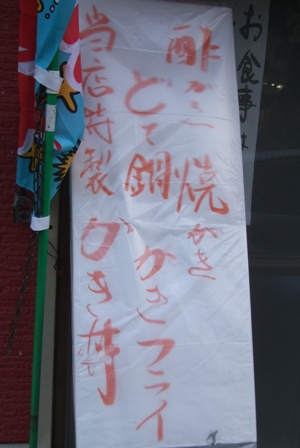 お食事は
酢がき 焼がき
どて鍋 かきフライ
当店特製 かき丼